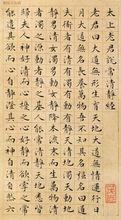 太上老君說常清靜經
老君曰大道無形生育天地大道無情運行日
月大道無名長養萬物吾不知其名強名曰道
夫道者有清有濁有動有靜天清地濁天動地
靜男清女濁男動女靜降本流末而生萬物清
者濁之源動者靜之基人能常清靜天地悉皆
歸夫人神好清而心擾之人心好靜而慾牽之常
能遣其慾而心自靜澄其心而神自清自然六